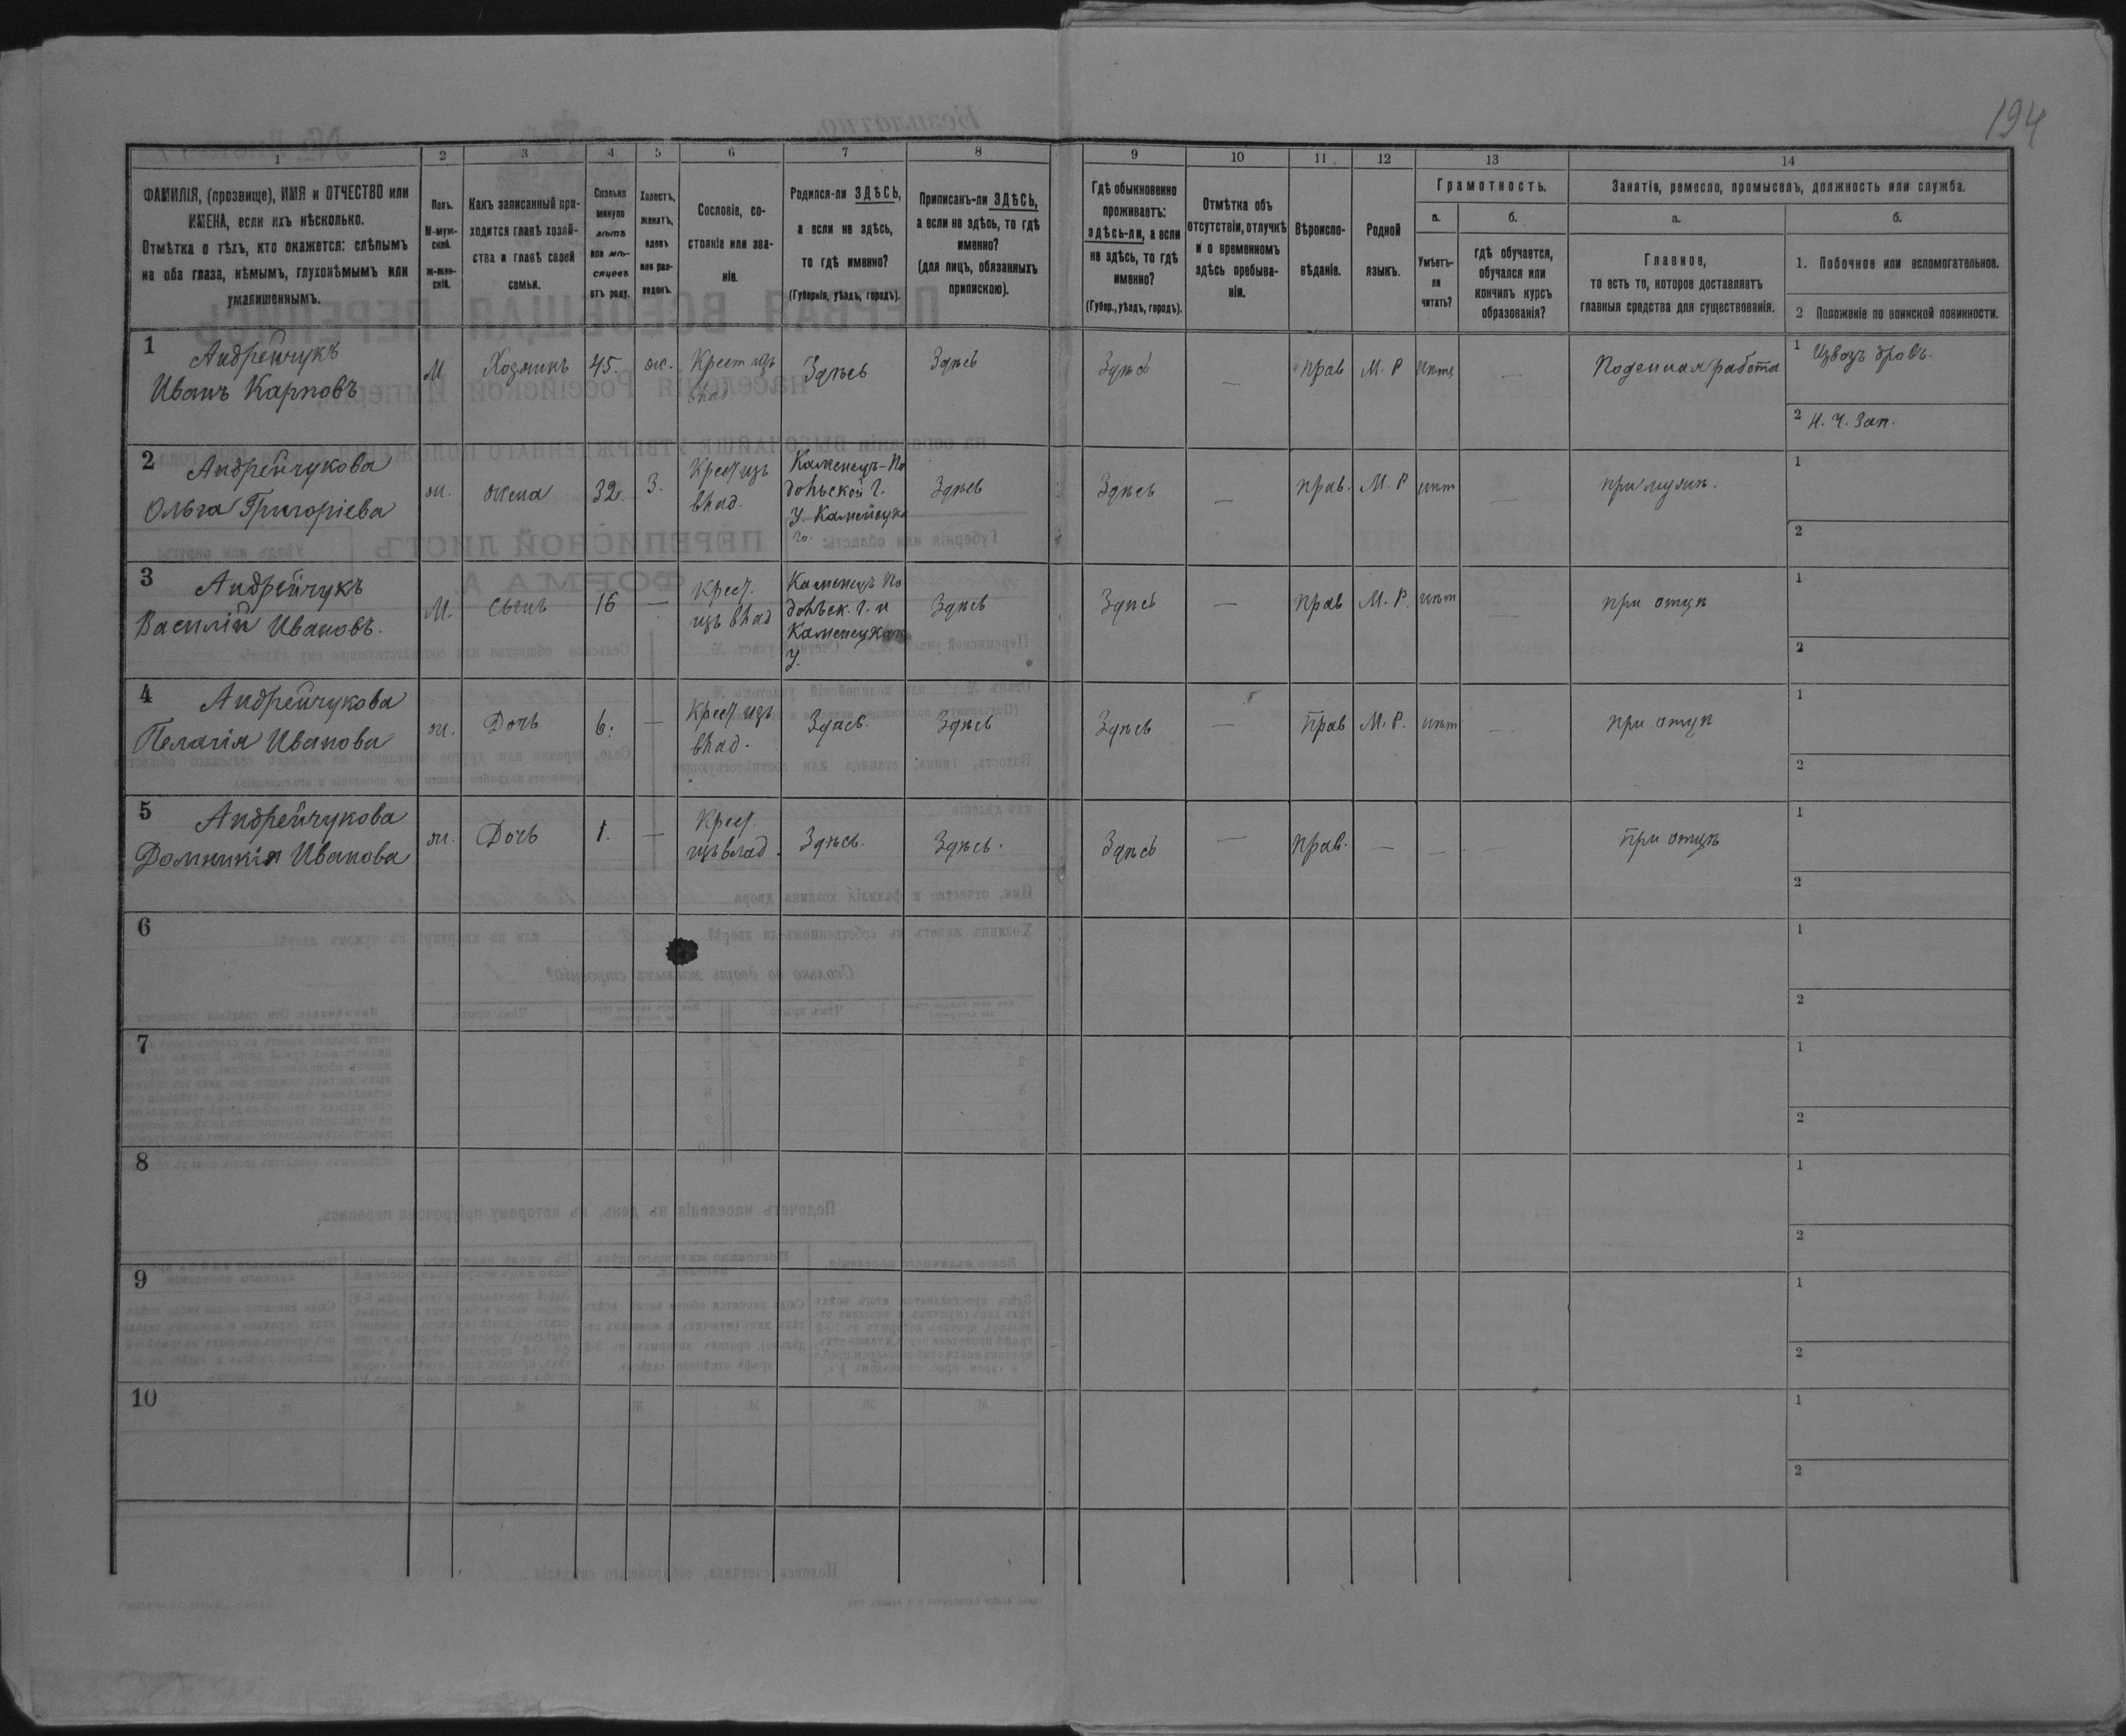 194
1
2
3
4
5
6
7
8
9
10
11
12
13
14
ФАМИЛІЯ, (прозвище), ИМЯ и ОТЧЕСТВО или
ИМЕНА, если ихъ нѣсколько.
Отмѣтка о тѣхъ, кто окажется: слѣпымъ
на оба глаза, нѣмымъ, глухонѣмымъ или
умалишеннымъ.
Полъ.
М-муж-
ской.
ж-жен-
скій.
Какъ записанный при-
ходится главѣ хозяй-
ства и главѣ своей
семьи.
Сколько
минуло
лѣтъ
или мѣ-
сяцевъ
отъ роду.
Холостъ,
женатъ,
вдовъ
или раз-
веденъ.
Сословіе, со-
стояніе или зва-
ніе.
Родился-ли ЗДѢСЬ,
а если не здѣсь,
то гдѣ именно?
(Губернія, уѣздъ, городъ).
Приписанъ-ли ЗДѢСЬ,
а если не здѣсь, то гдѣ
именно?
(для лицъ, обязанныхъ
припискою).
Гдѣ обыкновенно
проживаетъ:
здѣсь-ли, а если
не здѣсь, то гдѣ
именно?
(Губер., уѣздъ, городъ).
Отмѣтка объ
отсутствіи, отлучкѣ
и о временномъ
здѣсь пребыва-
ніи.
Вѣроиспо-
вѣданіе.
Родной
языкъ.
Грамотность.
а.
Умѣетъ-
ли
читать?
б.
гдѣ обучается,
обучался или
кончилъ курсъ
образованія?
Занятіе, ремесло, промыселъ, должность или служба.
а.
Главное,
то есть то, которое доставляетъ
главныя средства для существованія.
б.
1. Побочное или вспомогательное.
2 Положеніе по воинской повинности.
1 Андрейчукъ
Иванъ Карповъ
М
Хозяинъ
45.
ж.
Крест изъ
влад
Здѣсь
Здѣсь
Здѣсь
—
прав
М. Р
—
Поденная работа
1 Извозъ дровъ.
2 Н. Ч. Зап.
2 Андрейчукова
Ольга Григоріева
ж.
жена
32.
З.
Крест изъ
влад.
Каменецъ-По
дольской г.
У. Каменецка
го.
Здѣсь
Здѣсь
—
прав.
М. Р
нѣт
—
при мужѣ.
1
2
3 Андрейчукъ
Василій Ивановъ.
М.
сынъ
16
—
Крест.
изъ влад
Каменецъ По
дольск. г. и
У.
Здѣсь
Здѣсь
—
прав
М. Р.
нѣт
—
при отцѣ
1
2
4 Андрейчукова
Пелагія Иванова
ж.
Дочь
6.
—
Крест изъ
влад.
Здѣсь.
Здѣсь
Здѣсь
—
прав
М. Р.
нѣт
—
при отцѣ
1
2
5 Андрейчукова
Домникія Иванова
ж.
Дочь
1.
—
Крест.
изъ влад.
Здѣсь.
Здѣсь.
Здѣсь
—
прав.
—
—
—
при отцѣ
1
2
6
1
2
7
1
2
8
1
2
9
1
2
10
1
2